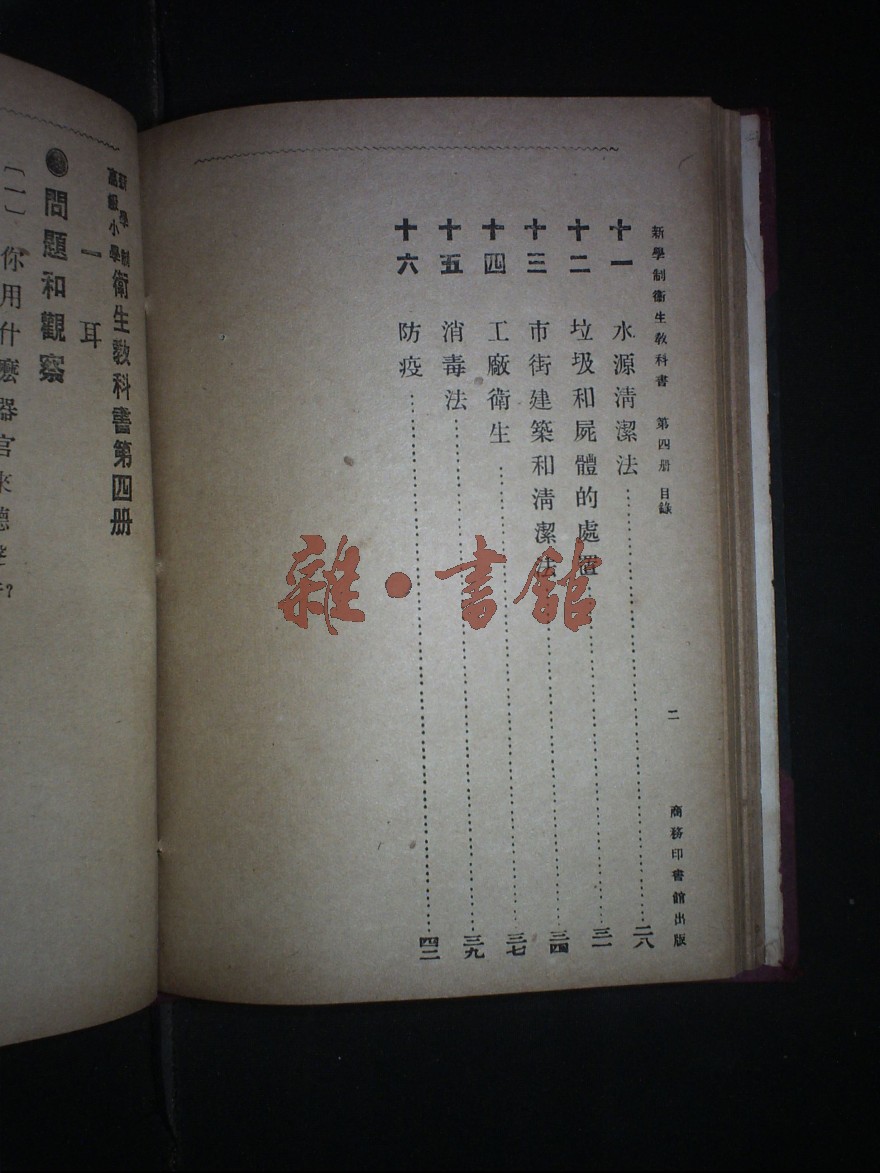 新學制衞生敎科書 第四册 目錄
二
商務印書館出版
十一 水源淸潔法 二八
十二 垃圾和屍體的處置 三一
十三 市街建築和淸潔法 三四
十四 工廠衞生 三七
十五 消毒法 三九
十六 防疫 四二
新學制
高級小學
衞生敎科書第四册
一 耳
問題和觀察
〔一〕 你用什麽器官來聽
雜·書館